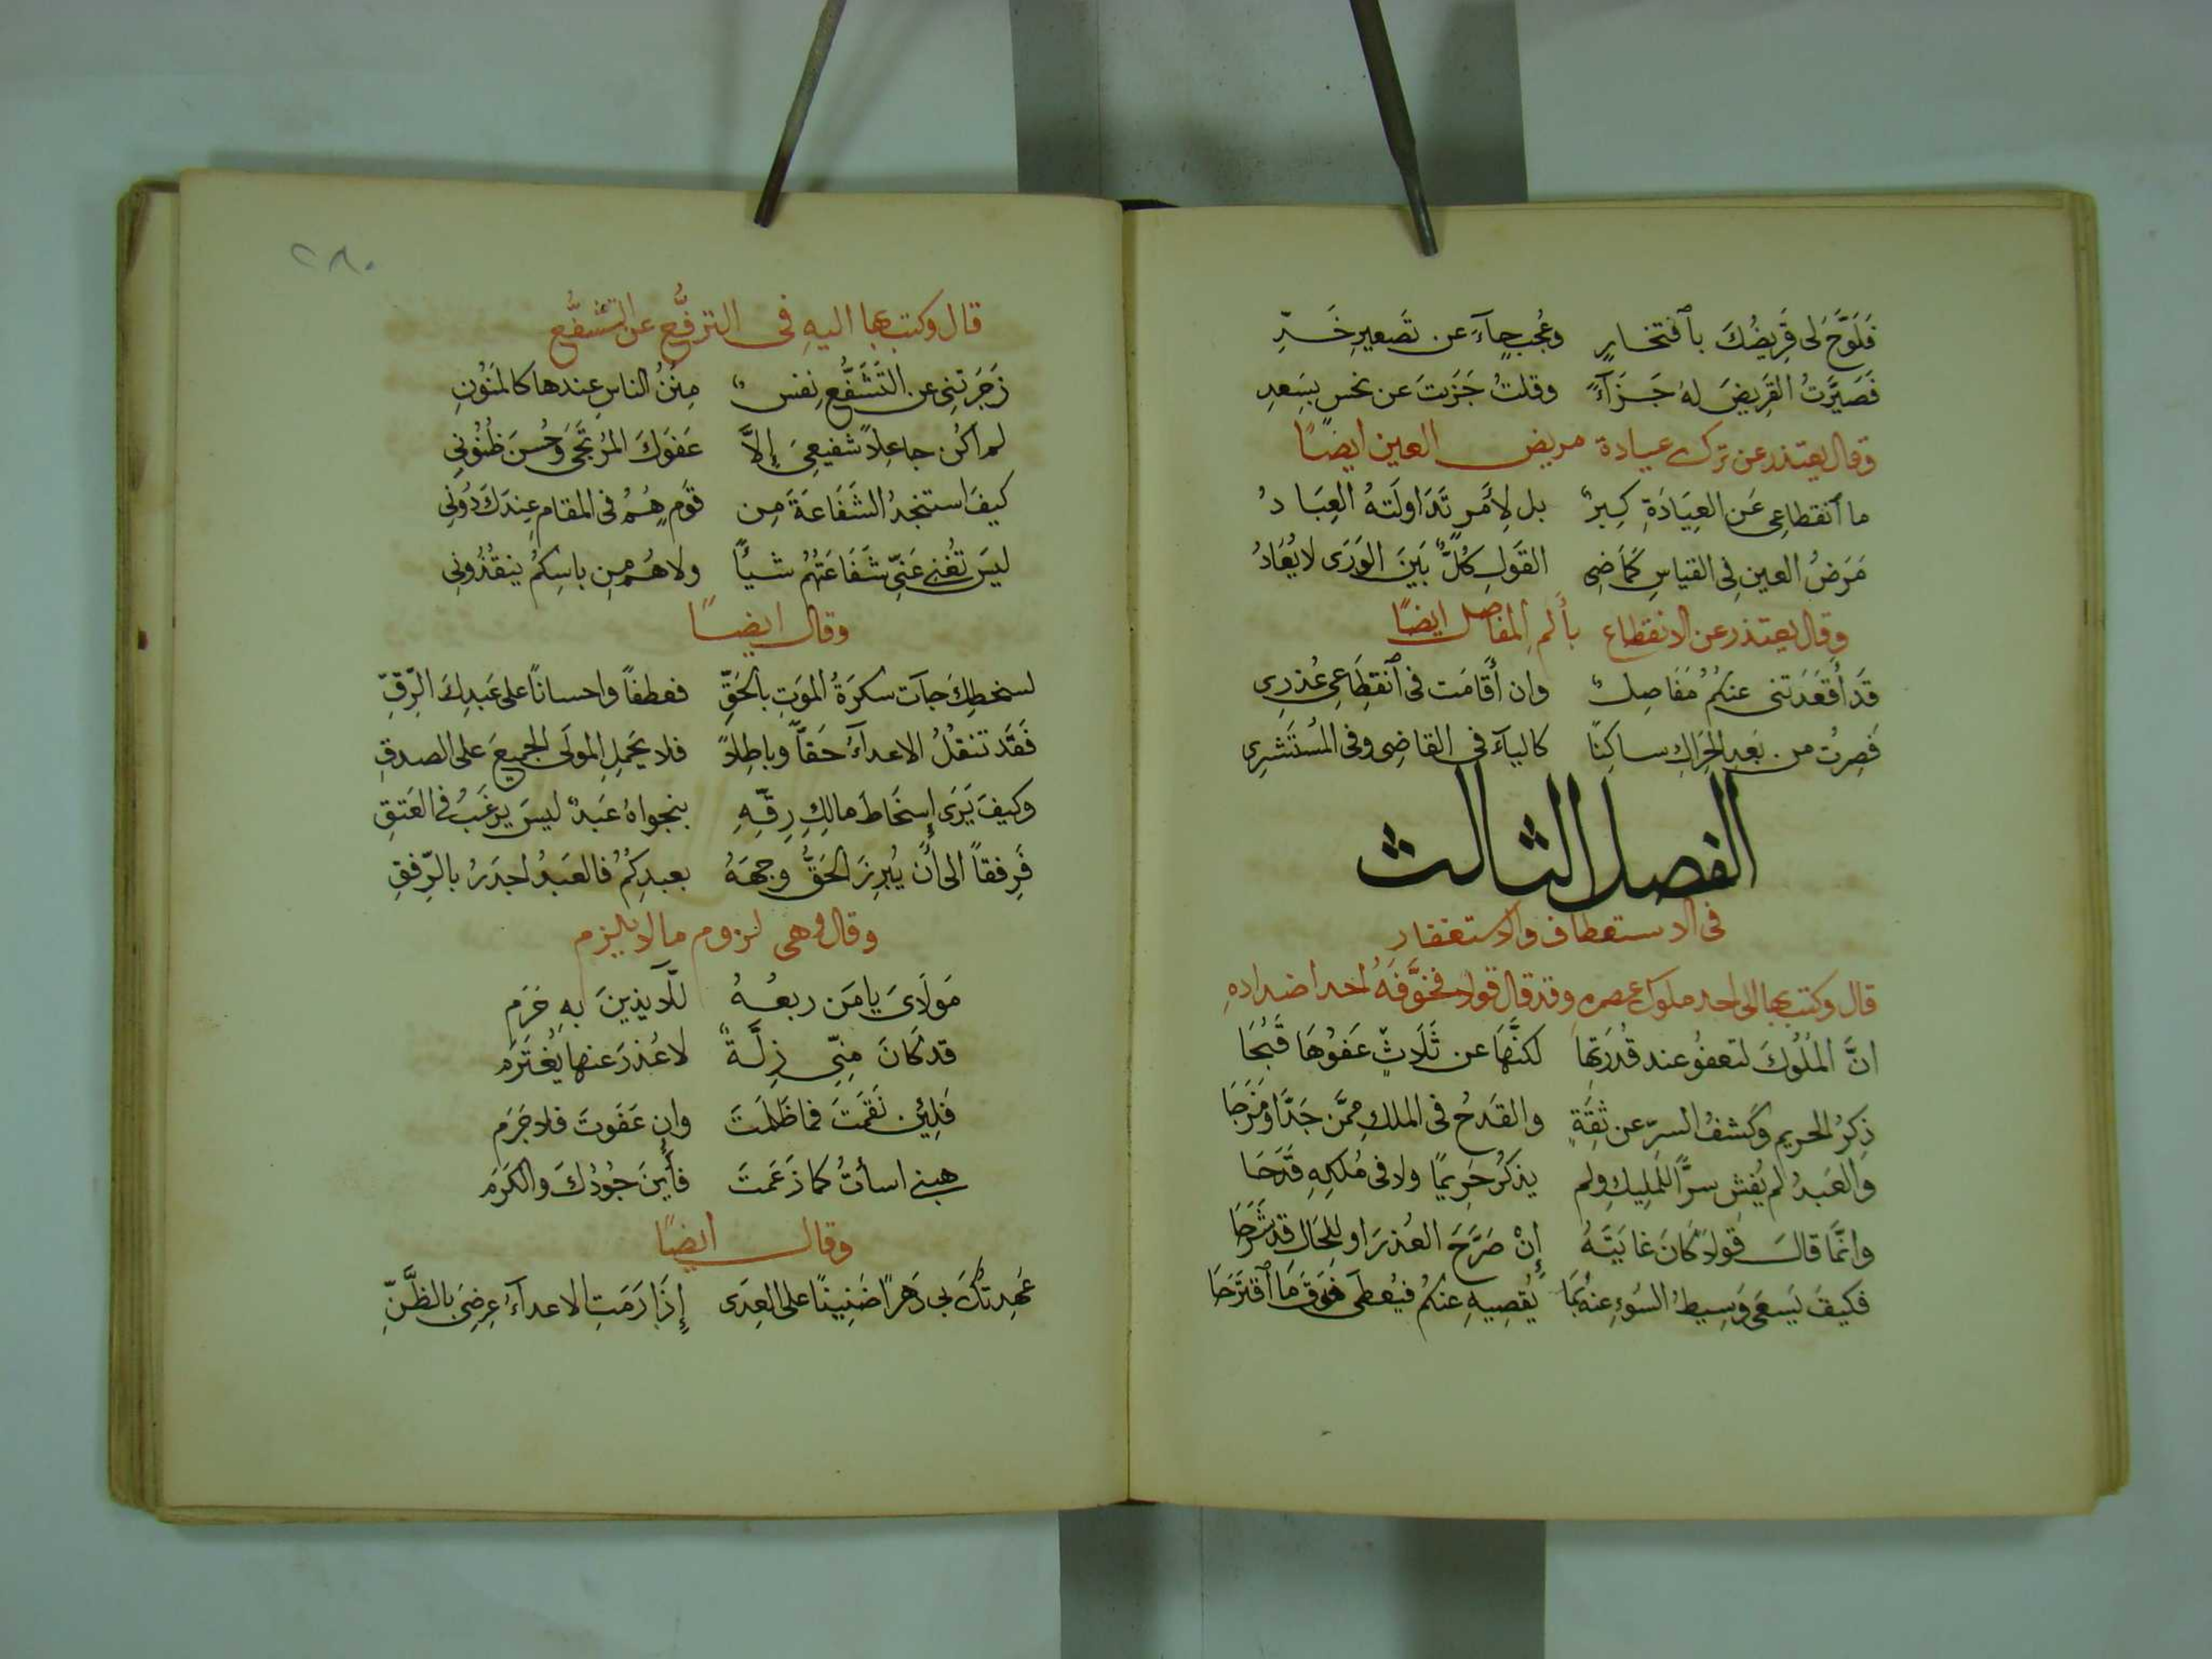 فَلَوَّحَ لى قَرِيضُكَ بٱفتخارٍ وعُجبٍ جآءَ عن تَصعيرِ خَدِّ
فَصَيَّرتُ القَرِيضَ لهُ جَزَآءً وقلتُ جَزَيتَ عن نحسٍ بسَعدِ
وقال يعتذر عن ترك عيادة مريض العين ايضًا
ما ٱنقطاعِى عَن العِيَادَةِ كِبرٌ بل لِأَمرٍ تَدَاولَتهُ العِبَادُ
مَرَضُ العينِ فى القياسِ كَمَا ضِى القَولِ كُلٌّ بَينَ الوَرَى لا يُعَادُ
وقال يعتذر عن الانقطاع بألم المفاصل ايضًا
قَد أَقعَدَتنى عنكُم مَفَاصِلٌ وان أَقَامَت فى ٱنقِطَاعِى عُذرِى
فَصِرتُ من بَعدِ الحِرَاكِ ساكِنًا كاليآءَ فى القاضِى وفى المُستَشرِى
الفصل الثالث
فى الاستعطاف والاستغفار
قال وكتب بها الى احد ملوك عصره وقد قال قولا فخوَّفَهُ احد اضدادهِ
انَّ المُلُوكَ لتعفُو عند قُدرَتِها لكنَّهَا عن ثَلَاثٍ عَفوُهَا قَبُحَا
ذِكرُ الحريم وكَشفُ السرّ عن ثِقَةٍ والقَدحُ فى الملكِ مِمَّن جَدَّ او مَزَحَا
والعَبدُ لم يُفشِ سرًّا للمَلِيكِ ولم يذكُر حَرِيمًا ولا فى مُلكِهِ قَدَحَا
وانَّمَا قالَ قولًا كَانَ غايَتَهُ إِنْ صَرَّحَ العُذرَ او للحَالِ قد شَرَحَا
فكيفَ يَسعَى وَسِيطُ السُوءِ عنهُ بمَا يُقصِيهِ عنكُم فيُعطَى فَوقَ مَا ٱقتَرَحَا
٢٨٠
قال وكتب بها اليهِ فى الترفُّع عن التشفُّع
زَجَرَتنِى عن التَشَفُّعِ نفسٌ مِنَنُ الناسِ عندها كالمَنُونِ
لم اكُن جاعِلاً شفيعِىَ إِلاَّ عَفوَكَ المُرتَجَى وَحُسنَ ظُنُونِى
كيفَ استنجدُ الشَفَاعَةَ مِن قَومٍ هُمُ فى المقامِ عِندَكَ دُونِى
ليسَ تُغنِى عَنِّى شَفَاعَتُهُم شيأً ولا هُم مِن باسِكُم ينقُذُونِى
وقال ايضًا
لسخطِكَ جآت سكرَةُ المَوتِ بالحَقِّ فعطفاً واحساناً على عَبدِكَ الرّقِّ
فَقَد تنقلُ الاعدآءُ حَقاًّ وباطِلاً فلا يَحمِلِ المولَى الجميعَ على الصدقِ
وكيفَ يَرَى إِسخَاطَ مالِكِ رِقِّهِ بنجواهُ عَبدٌ ليسَ يرغَبُ فى العَتقِ
فَرِفقاً الى أَن يُبرِزَ الحَقُّ وجهَهُ بعبدِكُم فالعَبدُ اجدَرُ بالرّفقِ
وقال وهى لزوم ما لا يلزم
مَولَاىَ يا مَن ربعُهُ للَّآيذِينَ بهِ حَرَم
قد كَانَ مِنِّى زِلَّةٌ لا عُذرَ عنها يُغتَرَم
فَلِئِن نَقَمتَ فما ظَلَمتَ وان عَفَوتَ فلا جَرَم
هبنى اسأتُ كما زَعَمتَ فأَينَ جُودُكَ والكَرَم
وقال ايضًا
عَهِدتُكَ بى دَهرًا ضَنِينًا على العِدَى إِذَا رَمَتِ الاعدآءُ عِرضِىَ بالظَّنِّ